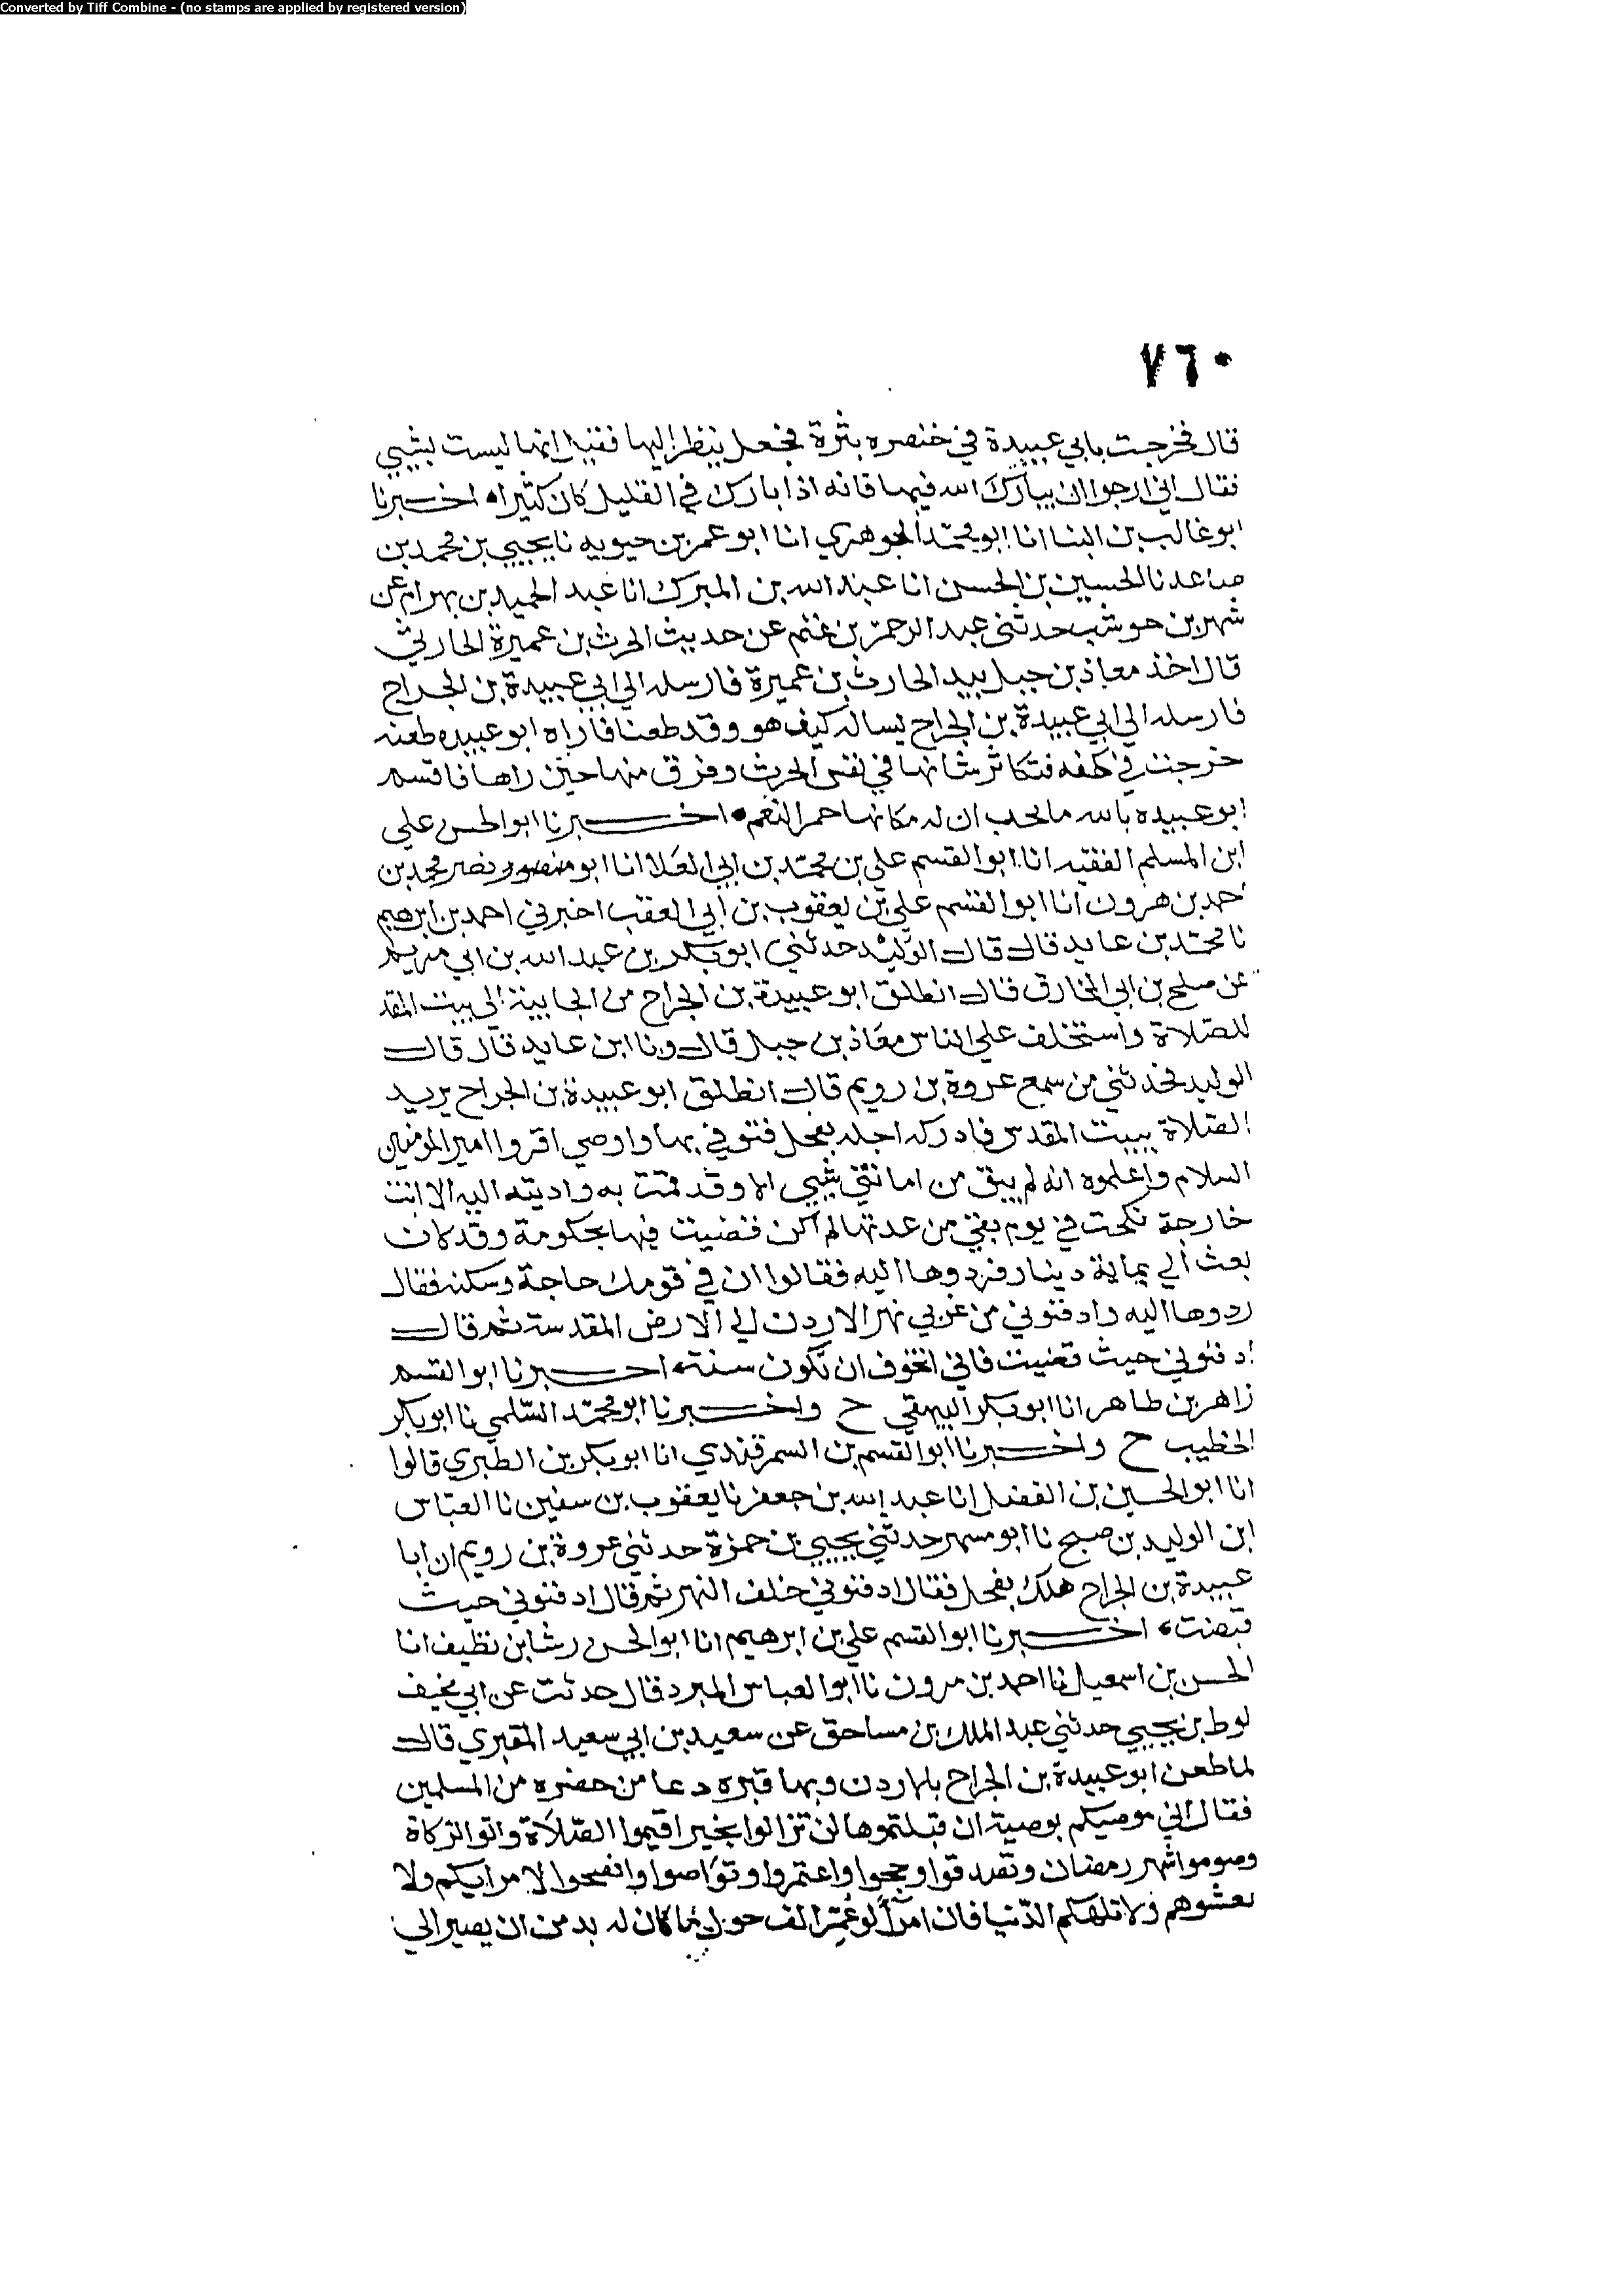 Converted by Tiff Combine - (no stamps are applied by registered version)
٧٦٠
قال فخرجت بابي عبيدة في خنصره بثرة فجعل ينظر اليها فقيل انها ليست بشيي
فقال اني ارجوا ان يبارك الله فيها فانه اذا بارك في القليل كان كثيرا اخبرنا
ابو غالب بن البنا انا ابو محمد الجوهري انا ابو عمر بن حيويه نا يحيي بن محمد بن
صاعد نا الحسين بن الحسن انا عبد الله بن المبرك انا عبد الحميد بن بهرام عن
شهر بن حوشب حدثني عبد الرحمن بن غنم عن حديث الحرث بن عميرة الحارثي
قال اخذ معاذ بن جبل بيد الحارث بن عميرة فارسله الي ابي عبيدة بن الجراح
فارسله الي ابي عبيدة بن الجراح يساله كيف هو وقد طعنا فاراه ابو عبيده طعنه
خرجت في كفه فتكاثر شانها في نفس الحرث وفرق منها حين راها فاقسم
ابو عبيده بالله ما يحب ان له مكانها حمر النعم اخبرنا ابو الحسن علي
ابن المسلم الفقيه انا ابو القسم علي بن محمد بن ابي العلا انا ابو منصور ونصر محمد بن
احمد بن هرون انا ابو القسم علي بن يعقوب بن ابي العقب اخبرني احمد بن ابرهيم
نا محمد بن عايد قال قال الوليد حدثني ابو بكر بن عبد الله بن ابي مريم
عن صلح بن ابي المخارق قال انطلق ابو عبيدة بن الجراح من الجابية الي بيت المقد
للصلاة واستخلف علي الناس معاذ بن جبل قال ونا ابن عايد قال قال
الوليد فحدثني من سمع عروة بن رويم قال انطلق ابو عبيدة بن الجراح يريد
الصلاة ببيت المقدس فادركه اجله بفحل فتوفي بها واوصي اقروا امير المومنين
السلام واعلموه انه لم يبق من امانتي شيي الا وقد قمت به واديته اليه الا ابنت
خارجة نكحت في يوم بقي من عدتها لم اكن قضيت فيها بحكومة وقد كان
بعث الي بماية دينار فردوها اليه فقالوا ان في قومك حاجة ومسكنه فقال
ردوها اليه وادفنوني من غربي نهر الاردن الي الارض المقدسة ثم قال
ادفنوني حيث قضيت فاني اتخوف ان تكون سنة اخبرنا ابو القسم
زاهر بن طاهر انا ابو بكر البيهقي ح واخبرنا ابو محمد السلمي نا ابو بكر
الخطيب ح واخبرنا ابو القسم بن السمرقندي انا ابو بكر بن الطبري قالوا
انا ابو الحسين بن الفضل انا عبد الله بن جعفر نا يعقوب بن سفين نا العباس
ابن الوليد بن صبح نا ابو مسهر حدثني يحيي بن حمزة حدثني عروة بن رويم ان ابا
عبيدة بن الجراح هلك بفحل فقال ادفنوني خلف النهر ثم قال ادفنوني حيث
قبضت اخبرنا ابو القسم علي بن ابرهيم انا ابو الحسن رشا بن نظيف انا
الحسن بن اسمعيل نا احمد بن مرون نا ابو العباس المبرد قال حدثت عن ابي مخيف
لوط بن يحيي حدثني عبد الملك بن مساحق عن سعيد بن ابي سعيد المقبري قال
لما طعن ابو عبيدة بن الجراح بالاردن وبها قبره دعا من حضره من المسلمين
فقال اني موصيكم بوصية ان قبلتموها لن تزالوا بخير اقيموا الصلاة واتوا الزكاة
وصوموا شهر رمضان وتصدقوا وحجوا واعتمروا وتواصوا وانصحوا لامرايكم ولا
تغشوهم ولا تلهكم الدنيا فان امرأ لو عمر الف حول ما كان له بد من ان يصير الي